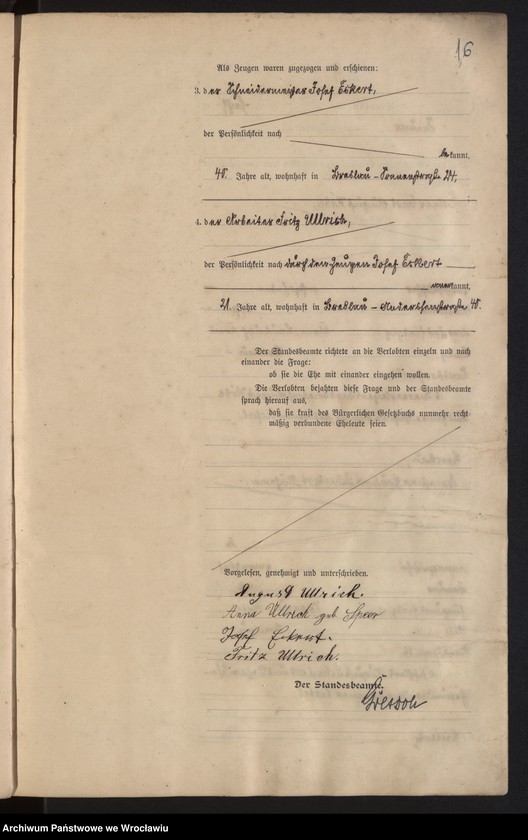 16
Als Zeugen waren zugezogen und erschienen:
3. der Schneidermeister Josef Eckert,
der Persönlichkeit nach
bekannt,
48 Jahre alt, wohnhaft in Breslau –
4. der Arbeiter Fritz Ullrich,
der Persönlichkeit nach durch den Zeugen Josef Eckert
anerkannt,
21 Jahre alt, wohnhaft in Breslau – 48.
Der Standesbeamte richtete an die Verlobten einzeln und nach
einander die Frage:
ob sie die Ehe mit einander eingehen wollen.
Die Verlobten bejahten diese Frage und der Standesbeamte
sprach hierauf aus,
daß sie kraft des Bürgerlichen Gesetzbuchs nunmehr recht
mäßig verbundene Eheleute seien.
Vorgelesen, genehmigt und unterschrieben.
August Ullrich.
Anna Ullrich geb. Speer
Josef Eckert.
Fritz Ullrich.
Der Standesbeamte.
Archiwum Państwowe we Wrocławiu